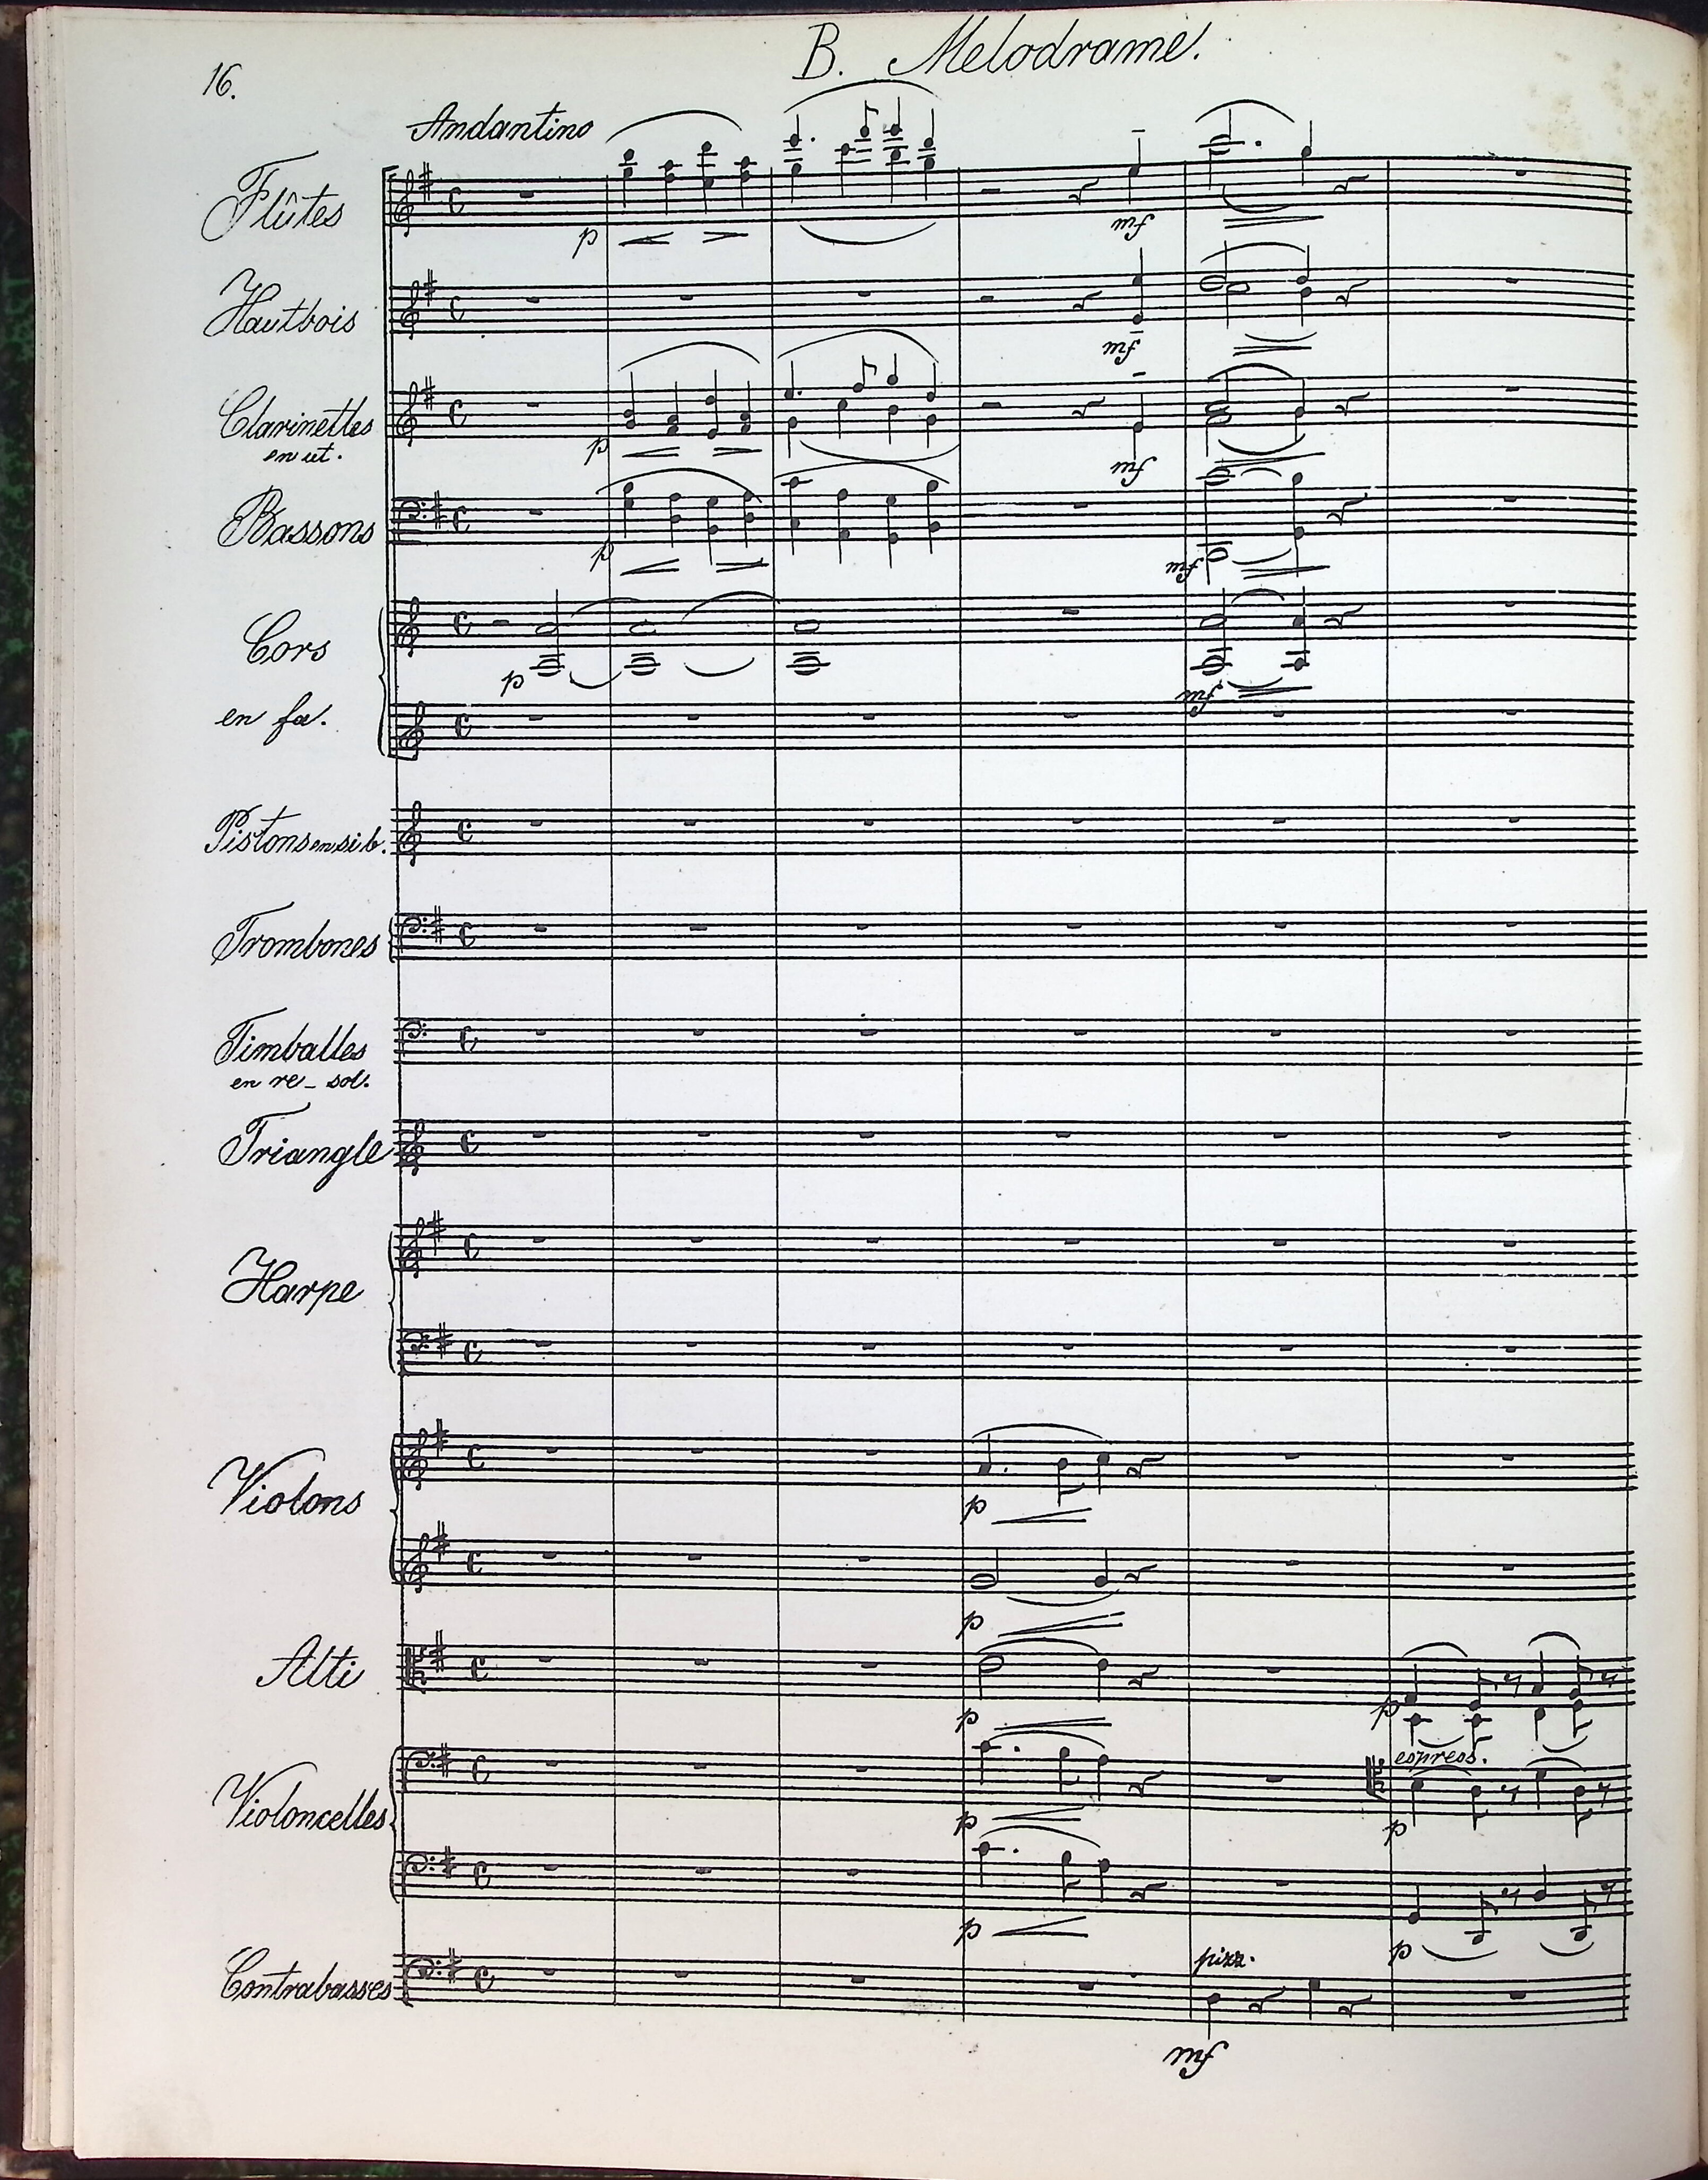 B. Melodrame.
16.
Andantino
Flûtes
p
mf
Hautbois
mf
Clarinettes
en ut.
p
mf
Bassons
p
mf
Cors
en fa.
p
mf
Pistons en si b.
Trombones
Timballes
en re - sol.
Triangle
Harpe
Violons
p
p
Alti
p
p
Violoncelles
espress.
p
p
p
p
Contrabasses
pizz.
mf